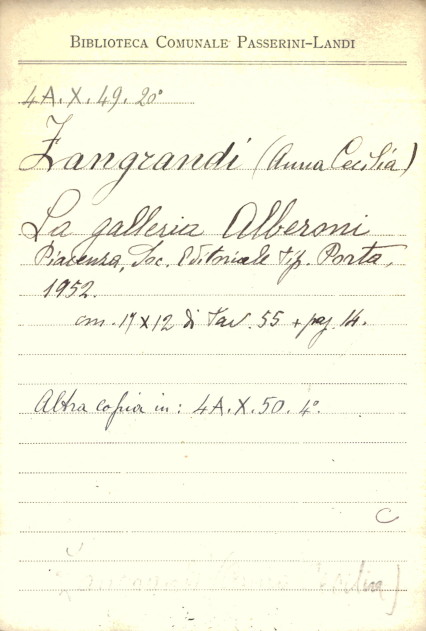 BIBLIOTECA COMUNALE PASSERINI-LANDI
4A.X.49.20°
Zangrandi (Anna Cecilia)
La galleria Alberoni
Piacenza, Soc. Editoriale tip. Porta,
1952.
cm. 17 x 12 di Tav. 55 + pag. 14.
Altra copia in: 4A.X.50.4°.
C